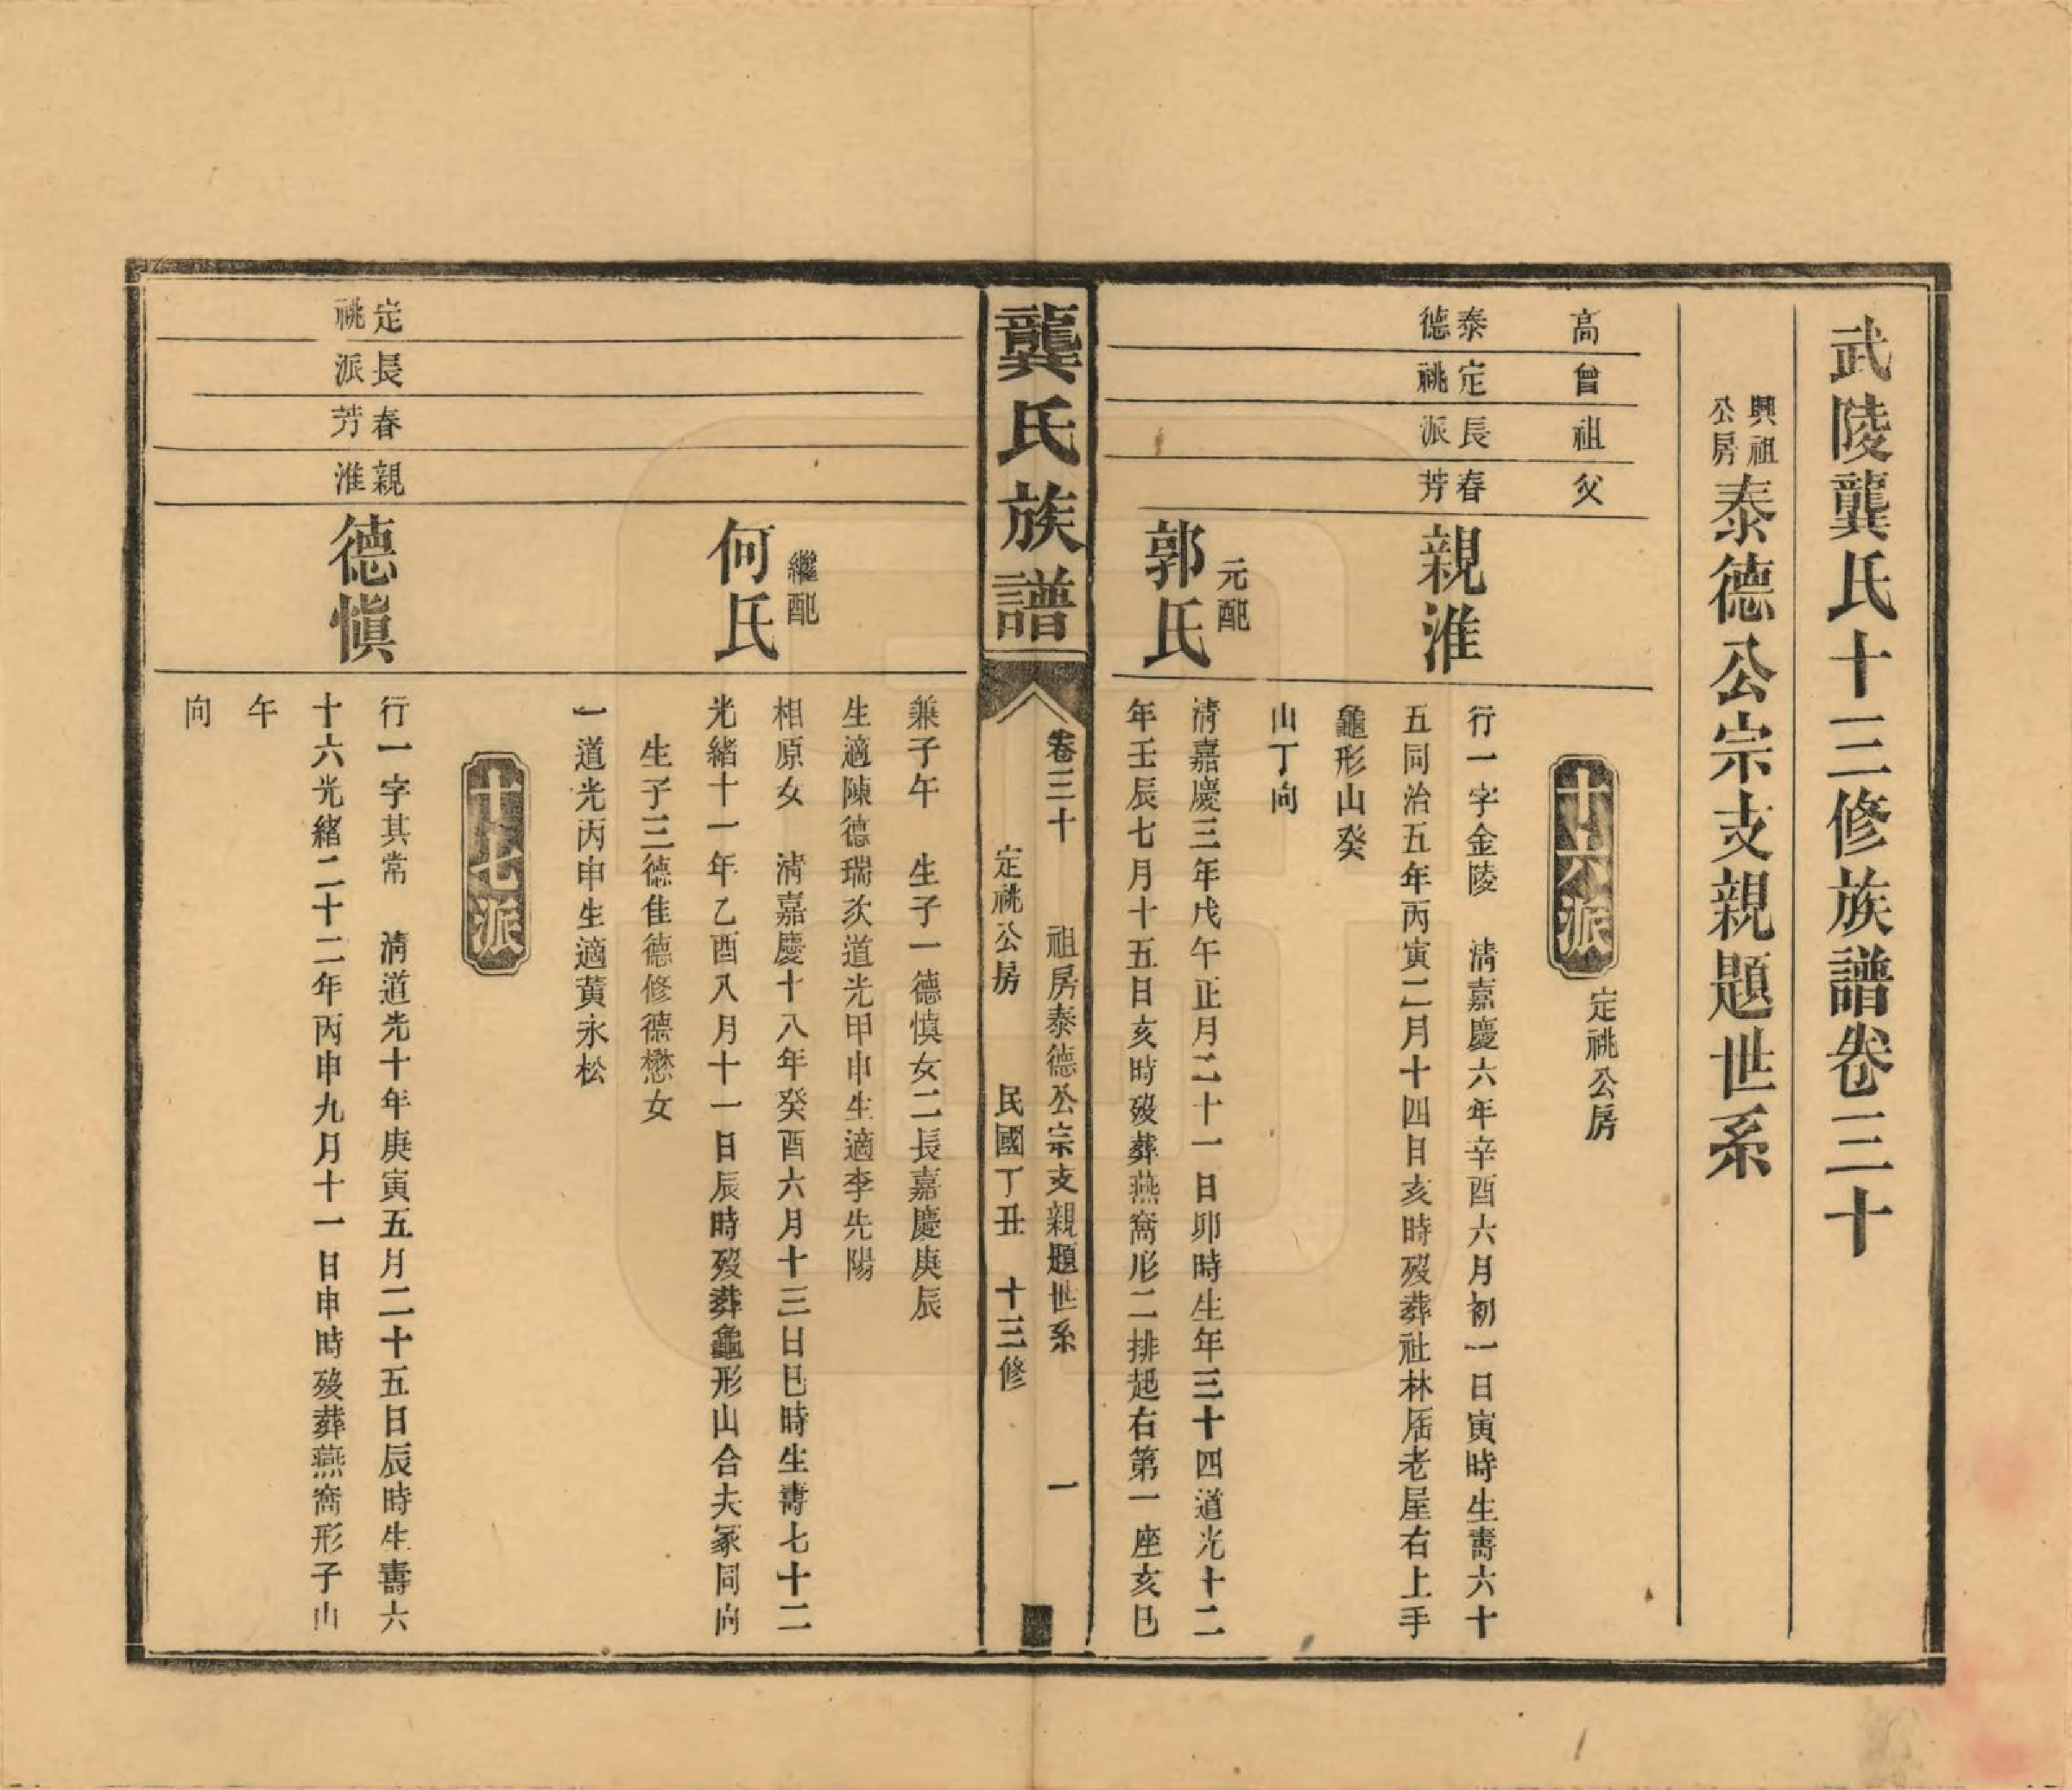 武陵龔氏十三修族譜卷三十
興祖公房泰德公宗支親題世系
高
曾
祖
父
十六派
定祧公房
泰德
定祧
長派
春芳
親淮
行一字金陵　清嘉慶六年辛酉六月初一日寅時生壽六十
五同治五年丙寅二月十四日亥時歿葬社林居老屋右上手
龜形山癸
山丁向
元配
郭氏
清嘉慶三年戊午正月二十一日卯時生年三十四道光十二
年壬辰七月十五日亥時歿葬燕窩形二排起右第一座亥巳
龔氏族譜
卷三十　祖房泰德公宗支親題世系　一
定祧公房　民國丁丑　十三修
兼子午　生子一德慎女二長嘉慶庚辰
生適陳德瑞次道光甲申生適李先陽
繼配
何氏
相原女　清嘉慶十八年癸酉六月十三日巳時生壽七十二
光緒十一年乙酉八月十一日辰時歿葬龜形山合夫冢同向
生子三德佳德修德懋女
一道光丙申生適黃永松
十七派
定祧
長派
春芳
親淮
德慎
行一字其常　清道光十年庚寅五月二十五日辰時生壽六
十六光緒二十二年丙申九月十一日申時歿葬燕窩形子山
午
向